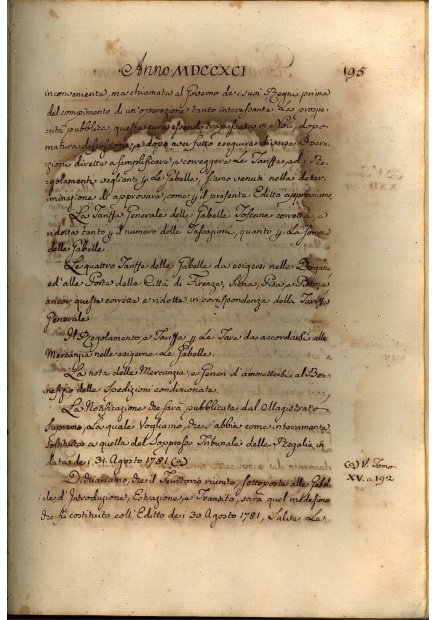 Anno MDCCXCI
195
inconveniente, ma chiamata al Governo de i suoi Regni prima
del compimento di un'operazione tanto interessante La prospe-
rità pubblica, questa cura essendo trapassata in Noi, dopo
matura discussione, e dopo aver fatto eseguire diverse Opera-
zioni dirette a semplificare, a correggere Le Tariffe, ed i Re-
golamenti veglianti p Le Gabelle, siamo venuti nella deter-
minazione di approvare, come p il presente Editto approviamo
La Tariffa Generale delle Gabelle Toscane corretta, e
ridotta tanto p il numero delle Tassazioni, quanto p Le somme
delle Gabelle.
Le quattro Tariffe delle Gabelle da esigersi nelle Dogane
ed alle Porte della Città di Firenze, Siena, Pisa, e Pistoia
ancor queste corrette e ridotte in corrispondenza della Tariffa
Generale.
Il Regolamento, e Tariffa p Le Tare da accordarsi alle
Mercanzie nelle esigenze Le Gabelle.
La nota delle Mercanzie, e Generi d'ammettersi al Be-
nefizio delle Spedizioni condizionate.
La Notificazione che sarà pubblicata dal Magistrato
Supremo, La quale Vogliamo, che s'abbia come interamente
sostituita a quella del Soppresso Tribunale delle Regalie in
data de i 31 Agosto 1781. (a)
(a) V. Tomo
XV. a 192
Dichiariamo, che il Territorio riunito, sottoposto alle Gabel-
le d'Introduzione, Estrazione, e Transito, sarà quel medesimo
che fù costituito coll'Editto de i 30 Agosto 1781, Salve Le